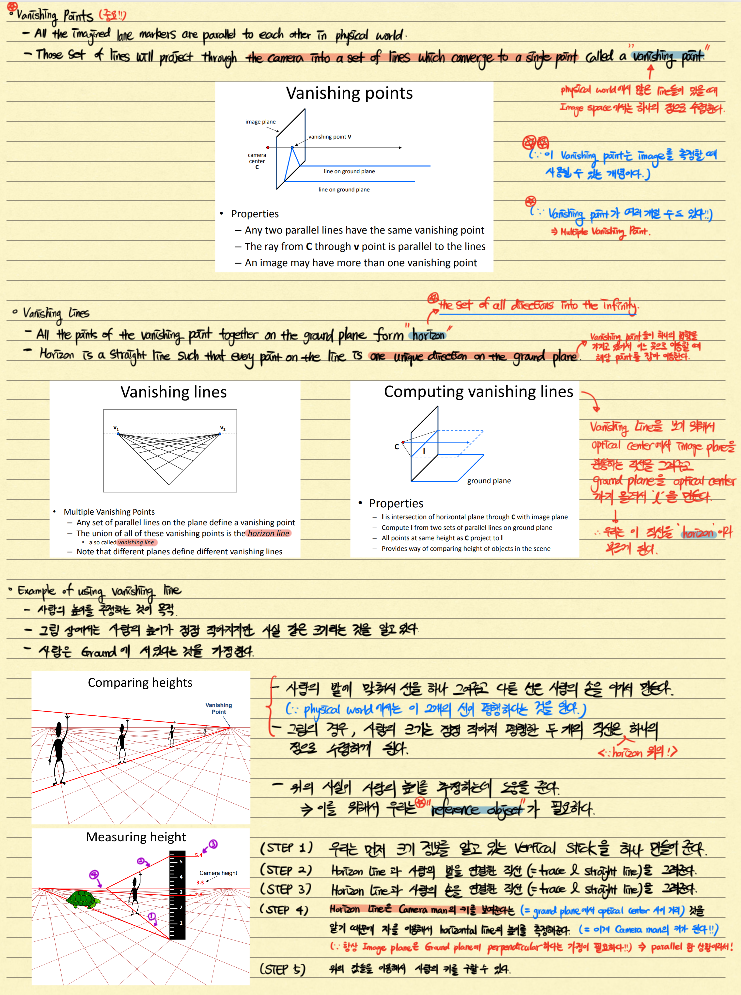 Vanishing Points (중요!!)
- All the imagined lane markers are parallel to each other in physical world.
- Those set of lines will project through the camera into a set of lines which converge to a single point called a "vanishing point"
physical world에서 많은 line들이 있을 때
Image space에서는 하나의 점으로 수렴한다.
Vanishing points
image plane
vanishing point V
camera
center
C
line on ground plane
line on ground plane
(∵ 이 Vanishing point는 image를 측정할 때
사용될 수 있는 개념이다.)
(∵ Vanishing point가 여러개일 수도 있다!!)
⇒ Multiple Vanishing Point.
• Properties
– Any two parallel lines have the same vanishing point
– The ray from C through v point is parallel to the lines
– An image may have more than one vanishing point
the set of all directions into the infinity.
Vanishing Lines
- All the points of the vanishing point together on the ground plane form "horizon"
- Horizon is a straight line such that every point on the line is one unique direction on the ground plane.
Vanishing point들이 하나의 방향을
가지고 있어서 어느 곳으로 이동할 때
해당 point를 잡아 이동한다.
Vanishing lines
v1
v2
• Multiple Vanishing Points
– Any set of parallel lines on the plane define a vanishing point
– The union of all of these vanishing points is the horizon line
• also called vanishing line
– Note that different planes define different vanishing lines
Computing vanishing lines
C
l
ground plane
• Properties
– l is intersection of horizontal plane through C with image plane
– Compute l from two sets of parallel lines on ground plane
– All points at same height as C project to l
– Provides way of comparing height of objects in the scene
Vanishing Line을 보기 위해서
optical center에서 image plane을
관통하는 직선을 그려주고
ground plane을 optical center
까지 올려서 'l'을 만든다.
∴ 우리는 이 직선을 'horizon'이라
부르게 된다.
Example of using vanishing line
- 사람의 높이를 추정하는 것이 목적.
- 그림 상에서는 사람의 높이가 점점 작아지지만 사실 같은 크기라는 것을 알고 있다.
- 사람은 Ground에 서있다는 것을 가정한다.
Comparing heights
Vanishing
Point
- 사람의 발에 맞춰서 선을 하나 그려주고 다른 선은 사람의 손을 이어서 만든다.
(∵ physical world에서는 이 2개의 선이 평행하다는 것을 안다.)
- 그림의 경우, 사람의 크기는 점점 작아져 평행한 두 개의 직선은 하나의
점으로 수렴하게 된다.
<∵ horizon 위의!>
- 위의 사실이 사람의 높이를 추정하는데 도움을 준다.
⇒ 이를 위해서 우리는 "reference object"가 필요하다.
Measuring height
5.4
Camera height
5
4
3
2
1
①
②
③
④
(STEP 1) 우리는 먼저 크기 정보를 알고 있는 Vertical Stick을 하나 만들어 준다.
(STEP 2) Horizon Line과 사람의 발을 연결한 직선 (= trace & straight line)을 그려준다.
(STEP 3) Horizon Line과 사람의 손을 연결한 직선 (= trace & straight line)을 그려준다.
(STEP 4) Horizon Line은 Camera man의 키를 보여준다는 (= ground plane에서 optical center 사이 거리) 것을
알기 때문에 자를 이용해서 horizontal line의 높이를 측정해준다. (= 이게 Camera man의 키가 된다!!)
(∵ 항상 Image plane은 Ground plane에 perpendicular하다는 가정이 필요하다!!) ⇒ parallel 한 상황이라서!
(STEP 5) 위의 값들을 이용해서 사람의 키를 구할 수 있다.